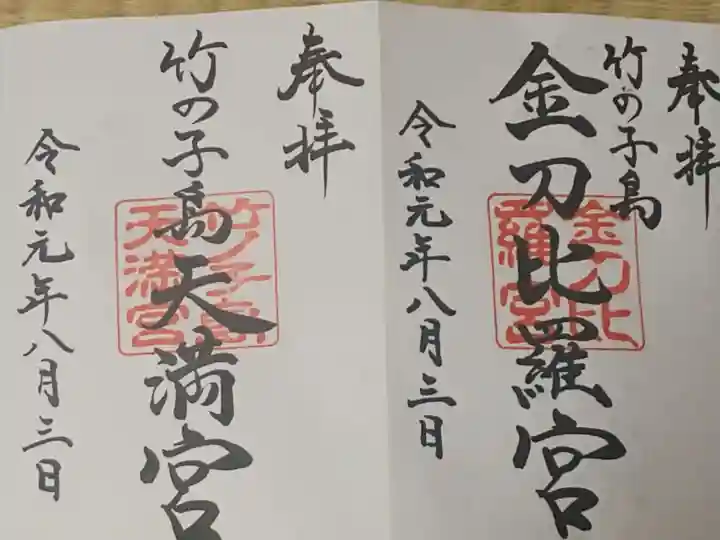 奉拝
竹の子島
金刀比羅宮
金刀比羅宮
令和元年八月三日
奉拝
竹の子島天満宮
竹ノ子島
天満宮
令和元年八月三日